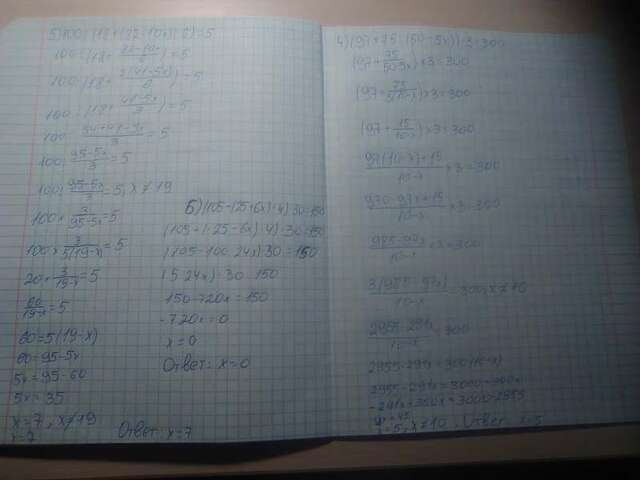 5) 100:(18+(82-10x):6)=5
100:(18+\frac{82-10x}{6})=5
100:(18+\frac{2(41-5x)}{6})=5
100:(18+\frac{41-5x}{3})=5
100:\frac{54+41-5x}{3}=5
100:\frac{95-5x}{3}=5
100:\frac{95-5x}{3}=5, x≠19
100×\frac{3}{95-5x}=5
100×\frac{3}{5(19-x)}=5
20×\frac{3}{19-x}=5
\frac{60}{19-x}=5
60=5(19-x)
60=95-5x
5x=95-60
5x=35
x=7, x≠19
x=7
Ответ: x=7
Б) (105-(25+6x)·4)·30=150
(105+(-25-6x)·4)·30=150
(105-100-24x)·30=150
(5-24x)·30=150
150-720x=150
-720x=0
x=0
Ответ: x=0
4) (97+75:(50-5x))·3=300
(97+\frac{75}{50-5x})×3=300
(97+\frac{75}{5(10-x)})×3=300
(97+\frac{15}{10-x})×3=300
\frac{97(10-x)+15}{10-x}×3=300
\frac{970-97x+15}{10-x}×3=300
\frac{985-97x}{10-x}×3=300
\frac{3(985-97x)}{10-x}=300, x≠10
\frac{2955-291x}{10-x}=300
2955-291x=300(10-x)
2955-291x=3000-300x
-291x+300x=3000-2955
9x=45
x=5, x≠10 Ответ: x=5